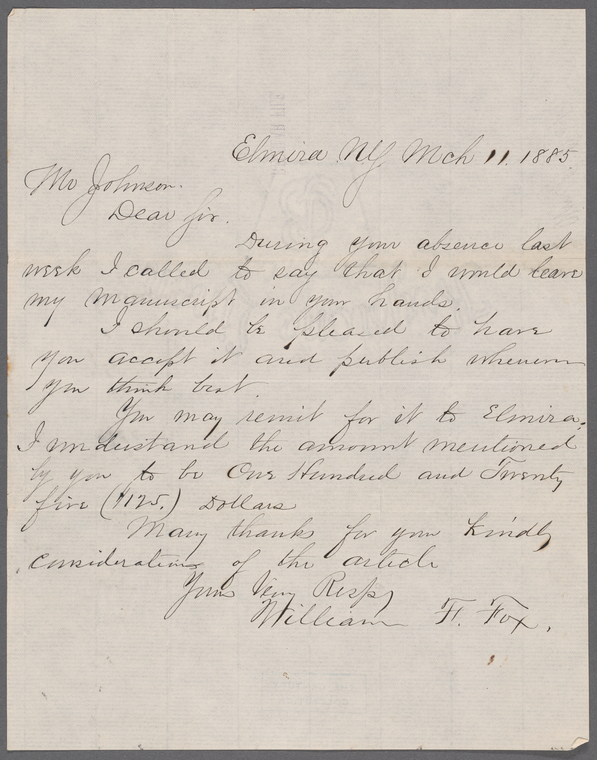 Elmira NY Mch 11. 1885.
Mr Johnson.
Dear Sir.
During your absence last
week I called to say that I would leave
my manuscript in your hands.
I should be pleased to have
you accept it and publish whenever
you think best.
You may remit for it to Elmira.
I understand the amount mentioned
by you to be One Hundred and Twenty
five ($125.) Dollars
Many thanks for your kindly
consideration of the article
Yours Very Respy
William F. Fox.